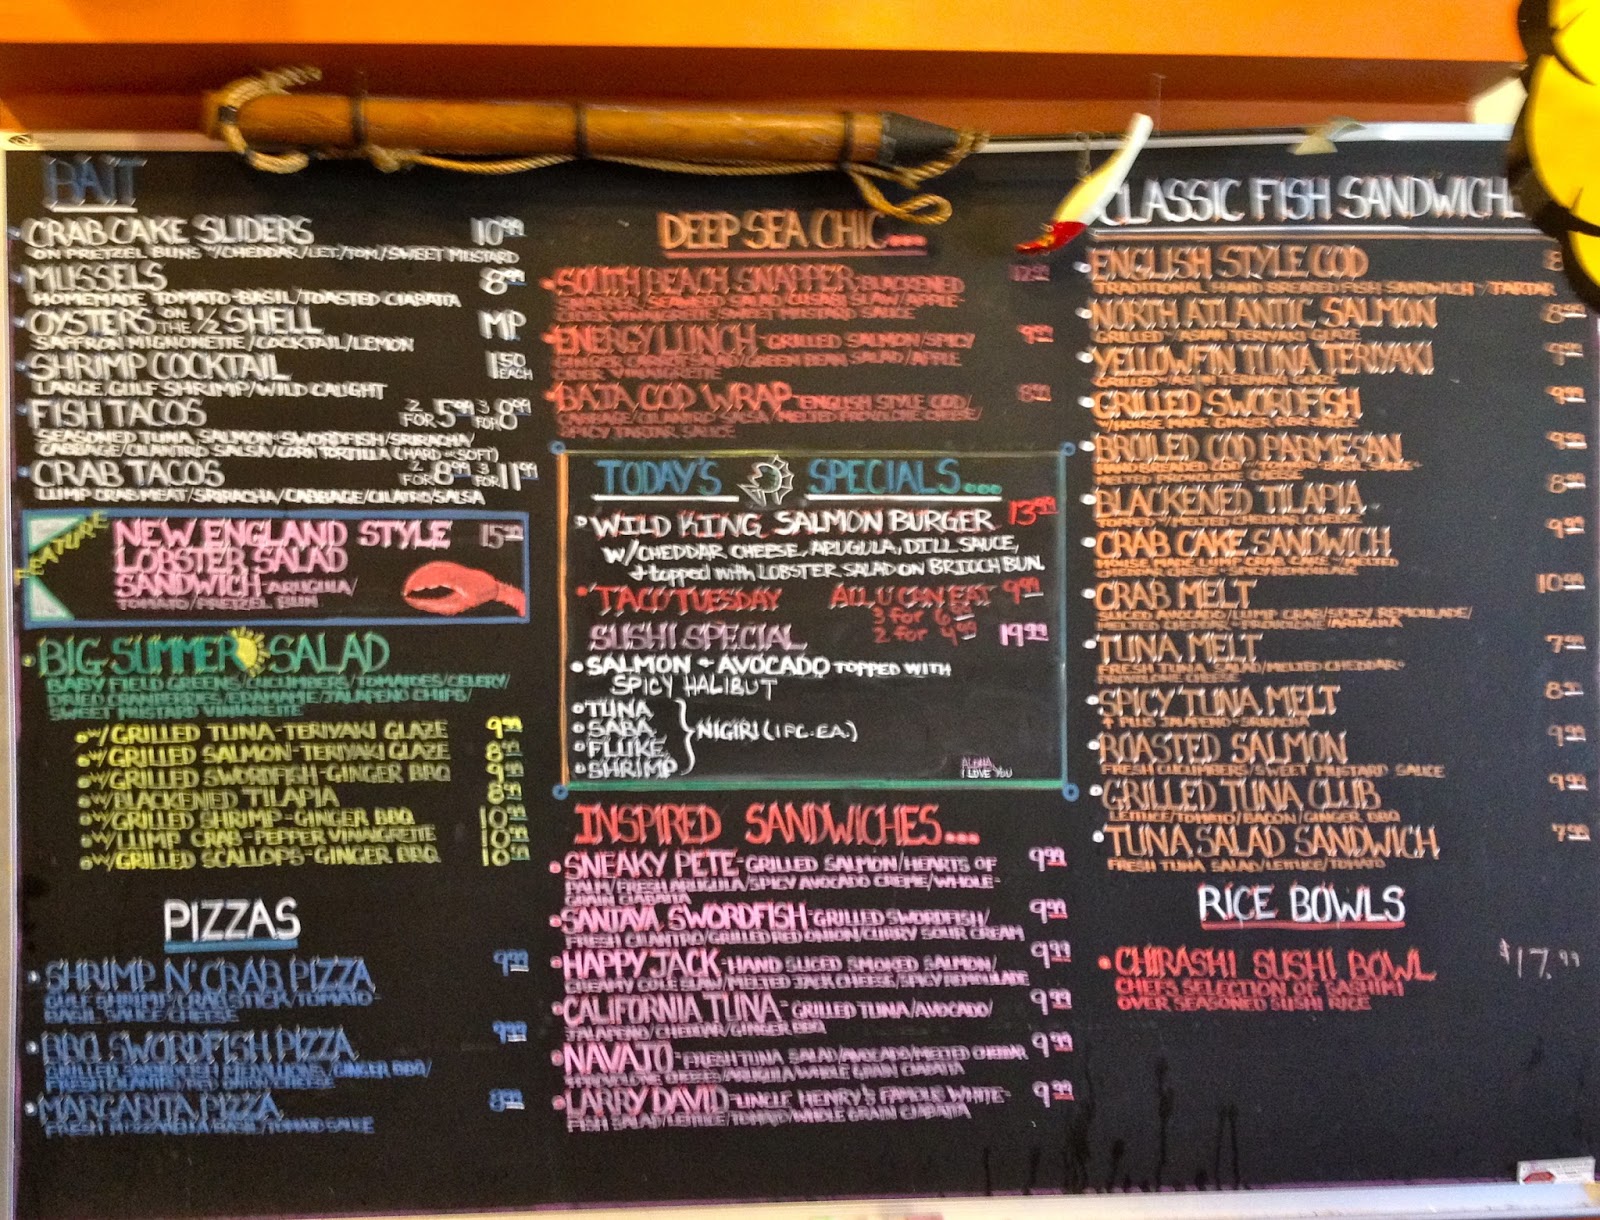 BAIT
CRAB CAKE SLIDERS 10.99
ON PRETZEL BUNS W/CHEDDAR/LET./TOM./SWEET MUSTARD
MUSSELS 8.99
HOMEMADE TOMATO-BASIL/TOASTED CIABATTA
OYSTERS ON THE 1/2 SHELL MP
SAFFRON MIGNONETTE/COCKTAIL/LEMON
SHRIMP COCKTAIL 1.50 EACH
LARGE GULF SHRIMP/WILD CAUGHT
FISH TACOS 2 FOR 5.99 3 FOR 8.99
SEASONED TUNA, SALMON SWORDFISH/SRIRACHA/
CABBAGE/CILANTRO SALSA/CORN TORTILLA (HARD OR SOFT)
CRAB TACOS 2 FOR 8.99 3 FOR 11.99
LUMP CRAB MEAT/SRIRACHA/CABBAGE/CILATRO/SALSA
FEATURE
NEW ENGLAND STYLE 15.99
LOBSTER SALAD
SANDWICH-ARUGULA/
TOMATO/PRETZEL BUN
BIG SUMMER SALAD
BABY FIELD GREENS/CUCUMBERS/TOMATOES/CELERY/
DRIED CRANBERRIES/EDAMAME/JALAPENO CHIPS/
SWEET MUSTARD VINIAREITE
W/ GRILLED TUNA-TERIYAKI GLAZE 9.99
W/ GRILLED SALMON-TERIYAKI GLAZE 8.99
W/GRILLED SWORDFISH-GINGER BBQ 9.99
W/BLACKENED TILAPIA 8.99
W/GRILLED SHRIMP-GINGER BBQ 10.99
W/LUMP CRAB-PEPPER VINAIGRETTE 10.99
W/GRILLED SCALLOPS-GINGER BBQ 10.99
PIZZAS
SHRIMP N' CRAB PIZZA 9.99
GULF SHRIMP/CRAB STICK/TOMATO-
BASIL SAUCE/CHEESE
BBQ SWORDFISH PIZZA 9.99
GRILLED SWORDFISH MEDALLIONS/GINGER BBQ/
FRESH CILANTRO/RED ONION/CHEESE
MARGARITA PIZZA 8.99
FRESH MOZZARELLA/BASIL/TOMATO SAUCE
DEEP SEA CHIC...
SOUTH BEACH SNAPPER BLACKENED
SNAPPER/SEAWEED SALAD/WASABI SLAW/APPLE-
CIDER VINAIGRETTE/SWEET MUSTARD SAUCE
ENERGY LUNCH-GRILLED SALMON/SPICY 9.99
GINGER CARROT SALAD/GREEN BEAN SALAD/APPLE
CIDER VINAIGRETTE
BAJA COD WRAP-ENGLISH STYLE COD/ 8.99
CABBAGE/CILANTRO SALSA/MELTED PROVOLONE CHEESE/
SPICY TARTAR SAUCE
TODAY'S SPECIALS...
WILD KING SALMON BURGER 13.99
W/CHEDDAR CHEESE, ARUGULA, DILL SAUCE,
+ topped with LOBSTER SALAD ON BRIOCH BUN.
TACO TUESDAY ALL U CAN EAT 9.99
3 for 6.
2 for 4.99
SUSHI SPECIAL 19.99
SALMON + AVOCADO TOPPED WITH
SPICY HALIBUT
TUNA
SABA
FLUKE
SHRIMP
NIGIRI (1 PC. EA.)
ALOHA
I LOVE YOU
INSPIRED SANDWICHES...
SNEAKY PETE-GRILLED SALMON/HEARTS OF 9.99
PALM/FRESH ARUGULA/SPICY AVOCADO CREME/WHOLE-
GRAIN CIABATTA
SANTAVA SWORDFISH-GRILLED SWORDFISH/ 9.99
FRESH CILANTRO/GRILLED RED ONION/CURRY SOUR CREAM
HAPPY JACK-HAND SLICED SMOKED SALMON/ 9.99
CREAMY COLE SLAW/MELTED JACK CHEESE/SPICY REMOULADE
CALIFORNIA TUNA-GRILLED TUNA/AVOCADO/ 9.99
JALAPENO/CHEDDAR/GINGER BBQ
NAVAJO-FRESH TUNA SALAD/AVOCADO/MELTED CHEDDAR 9.99
PROVOLONE CHEESE/ARUGULA WHOLE GRAIN CIABATTA
LARRY DAVID-UNCLE HENRY'S FAMOUS WHITE- 9.99
FISH SALAD/LETTUCE/TOMATO/WHOLE GRAIN CIABATTA
CLASSIC FISH SANDWICHE
ENGLISH STYLE COD 8
TRADITIONAL HAND BREADED FISH SANDWICH W/TARTAR
NORTH ATLANTIC SALMON 8.99
GRILLED W/ASIAN TERIYAKI GLAZE
YELLOWFIN TUNA TERIYAKI 9.99
GRILLED W/ASIAN TERIYAKI GLAZE
GRILLED SWORDFISH 9.99
W/HOUSE MADE GINGER BBQ SAUCE
BROILED COD PARMESAN 9.99
HAND BREADED COD W/TOMATO BASIL SAUCE+
MELTED PROVOLONE CHEESE
BLACKENED TILAPIA 8.99
TOPPED W/MELTED CHEDDAR CHEESE
CRAB CAKE SANDWICH 9.99
HOUSE MADE LUMP CRAB CAKE W/MELTED
CHEESE/SPICY REMOULADE
CRAB MELT 10.99
SLICED AVOCADO/LUMP CRAB/SPICY REMOULADE/
MELTED CHEDDAR + PROVOLONE/ARUGULA
TUNA MELT 7.99
FRESH TUNA SALAD/MELTED CHEDDAR+
PROVOLONE CHEESE
SPICY TUNA MELT 8.
↑ PLUS JALAPENO + SRIRACHA
ROASTED SALMON 9.99
FRESH CUCUMBERS/SWEET MUSTARD SAUCE
GRILLED TUNA CLUB 9.99
LETTUCE/TOMATO/BACON/GINGER BBQ
TUNA SALAD SANDWICH 7.99
FRESH TUNA SALAD/LETTUCE/TOMATO
RICE BOWLS
CHIRASHI SUSHI BOWL $17.99
CHEFS SELECTION OF SASHIMI
OVER SEASONED SUSHI RICE